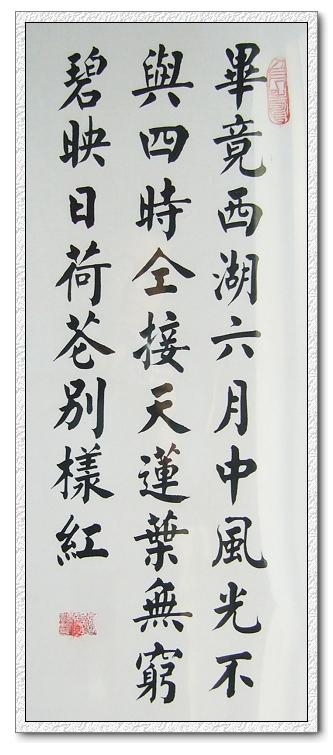 畢竟西湖六月中風光不
與四時仝接天蓮葉無窮
碧映日荷花别樣紅